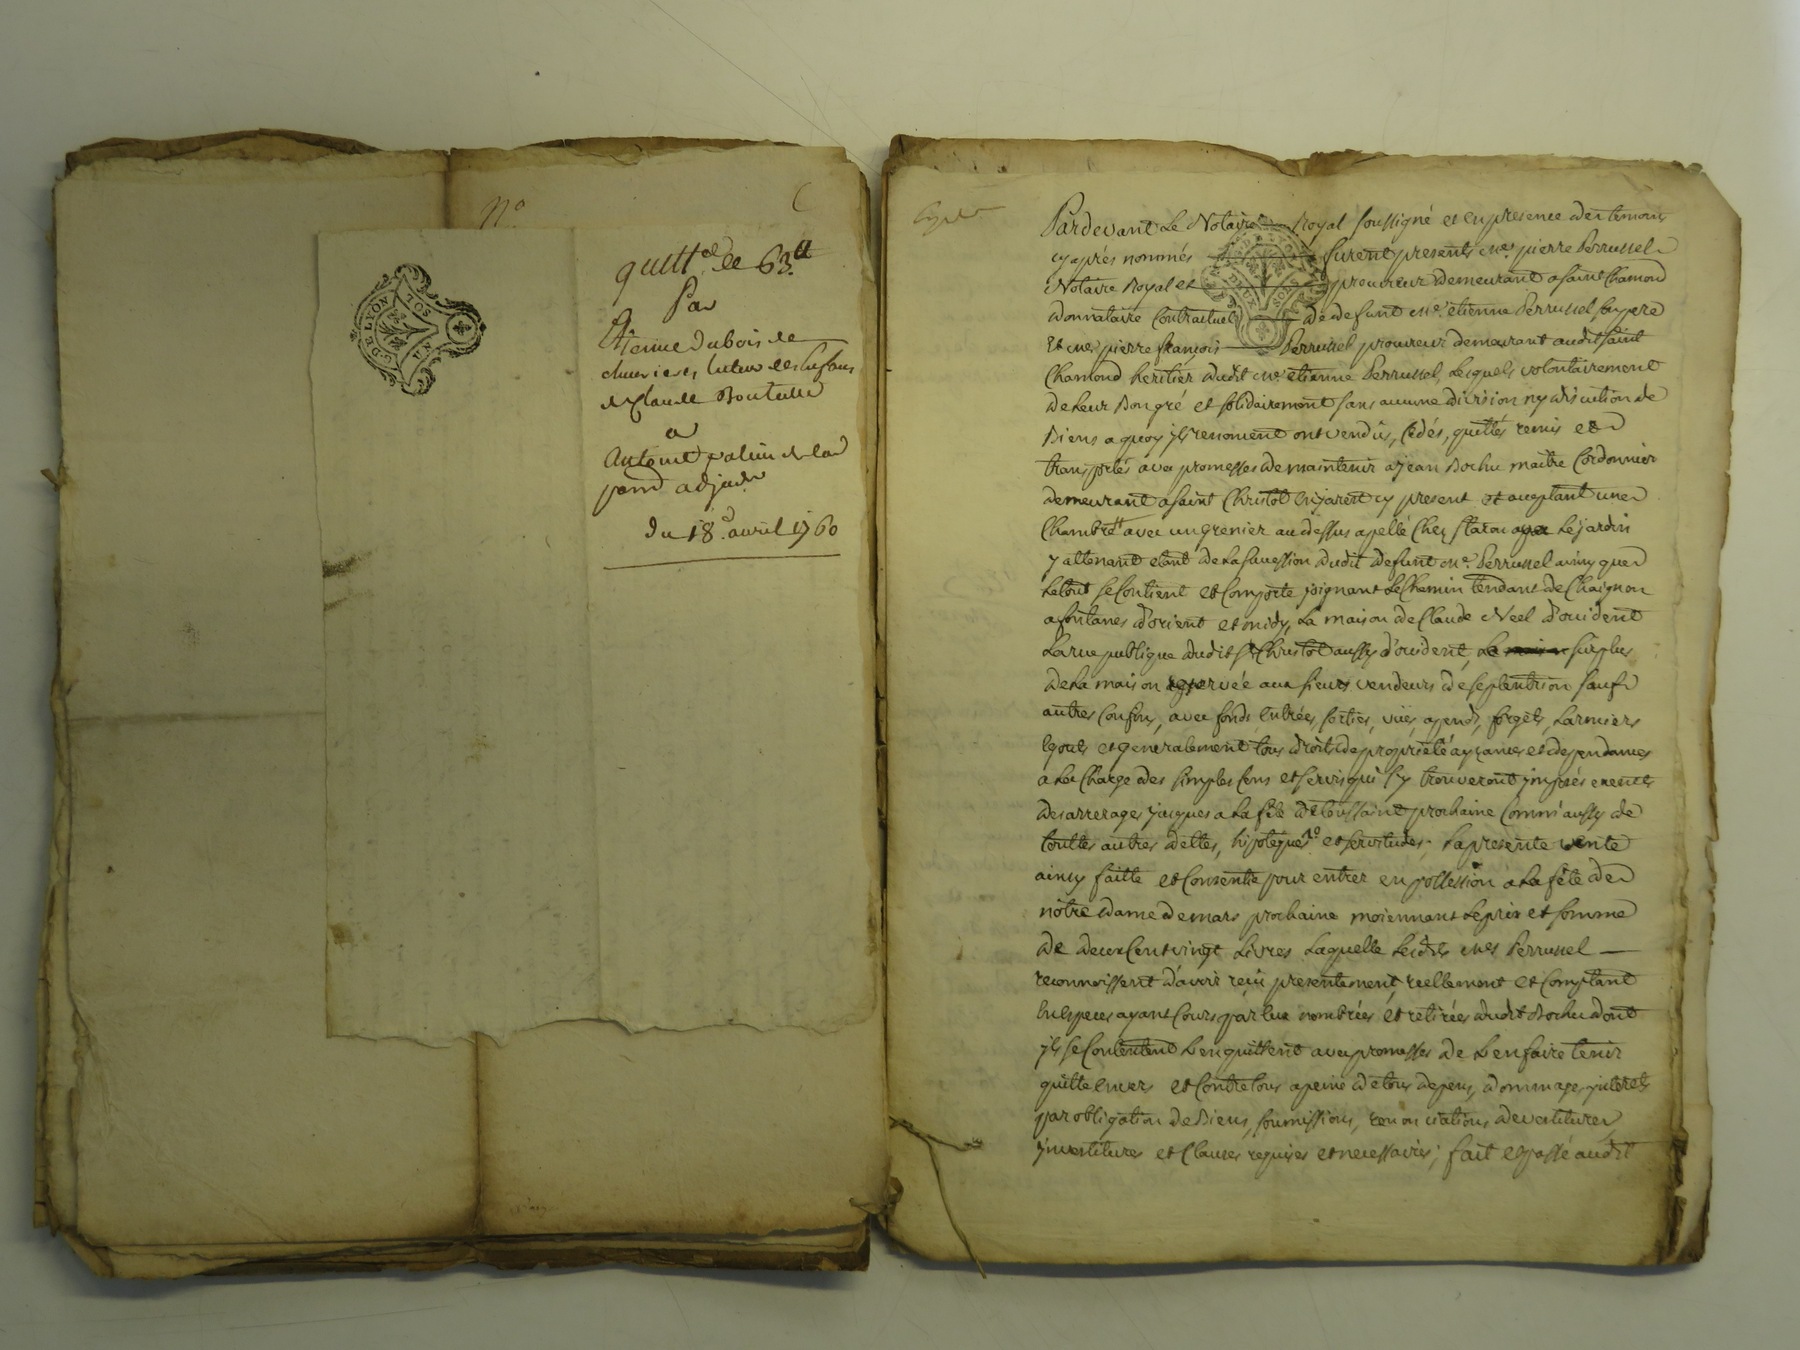 N°
quitt.ce de 63.tt
Par
Etienne Dubois de
chuvieres tuteur des Enfans
de Claude Bouteille
a
Antoine palin de la
pard adjudr
du 18.e avril 1760
GDE LYON
SOL
Pardevant Le Notaire Royal soussigné et en presence des temoins
cy aprés nommés furent presents me. pierre Perrussel
Notaire Royal et procureur demeurant a saint Chamond
donnataire Contractuel de defunt me. etienne Perrussel, son pere
et me. pierre françois Perrussel procureur demeurant audit saint
Chamond heritier dudit me. etienne Perrussel, Lesquels volontairement
de Leur Bon gré et solidairement sans aucune division ny discution de
Biens a quoy ils renoncent ont vendus, Cédés, quittés remis et
transportés avec promesses de maintenir a jean Bochu maitre Cordonnier
demeurant a saint Christôt en jarest cy present et acceptant une
Chambre avec un grenier au dessus apellé Chez staron avec Le jardin
y attenant etant de La succession dudit defunt me. Perrussel ainsy que
Letout se Contient et Comporte joignant Le Chemin tendant de Chaignon
a fontanes d'orient et midy, La maison de Claude Neel d'occident
La rue publique dudit St Christôt aussy d'occident, Le surplus
de La maison reservée aux sieurs vendeurs de septentrion sauf
autres Confins, avec fonds, Entrées, sorties, vües, apends, forgets, Larmiers
Egouts et generalement tous droits de proprieté aysances et dependances
a La Charge des simples Cens et servis qui s'y trouveront imposés exempts
des arrerages jusques a La fête de toussaint prochaine Comm'aussy de
touttes autres dettes, hipoteques et servitudes; La presente vente
ainsy faitte et Consentie pour entrer en possession a La fête de
nôtre dame de mars prochaine moiennant Le prix et somme
de deux Cent vingt Livres Laquelle Lesdits mes Perrussel
reconnoissent d'avoir reçu presentement, reellement et Comptant
En Especes ayant Cours par Eux nombrées et retirées dudit Bochu dont
ils se Contentent L'en quittent avec promesses de L'en faire tenir
quitte Envers et Contre tous a peine de tous depens, dommages, interets
par obligation de Biens, soumissions, renonciations devestitures
investitures et Clauses requises et necessaires; fait et passé audit